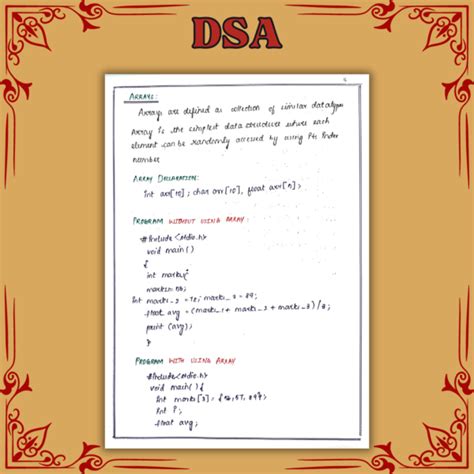 DSA
ARRAYS:
Arrays are defined as collection of similar data types
Array is the simplest data structure where each
element can be randomly accessed by using its index
number
ARRAY DECLARATION:
int arr[10]; char arr[10], float arr[5];
PROGRAM WITHOUT USING ARRAY:
#include<stdio.h>
void main()
{
int marks
int marks_2 = 78; marks_3 = 89;
float avg = (marks_1 + marks_2 + marks_3)/3;
print (avg);
}
PROGRAM WITH USING ARRAY
#include<stdio.h>
void main(){
int marks[3] =
int i;
float avg;